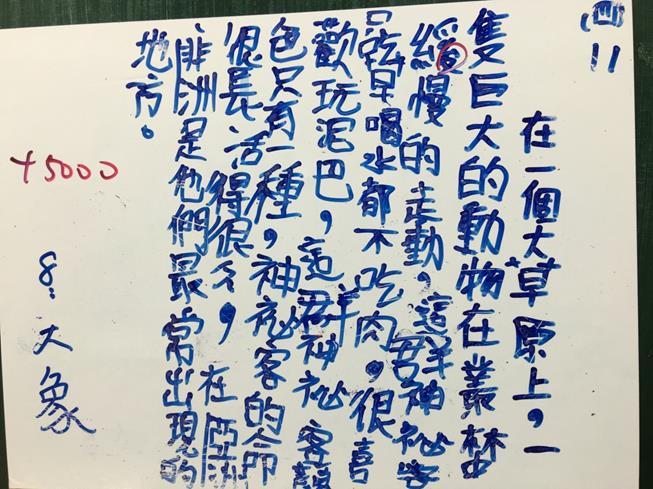 (四)11
在一個大草原上，一
隻巨大的動物在叢林中
緩慢的走動，這群神祕客
喝水都不吃肉，很喜
歡玩泥巴，這群神祕客顏
色只有一種，神祕客的命
很長活得很久，在亞洲
非洲是他們最常出現的
地方。
+5000
8:大象